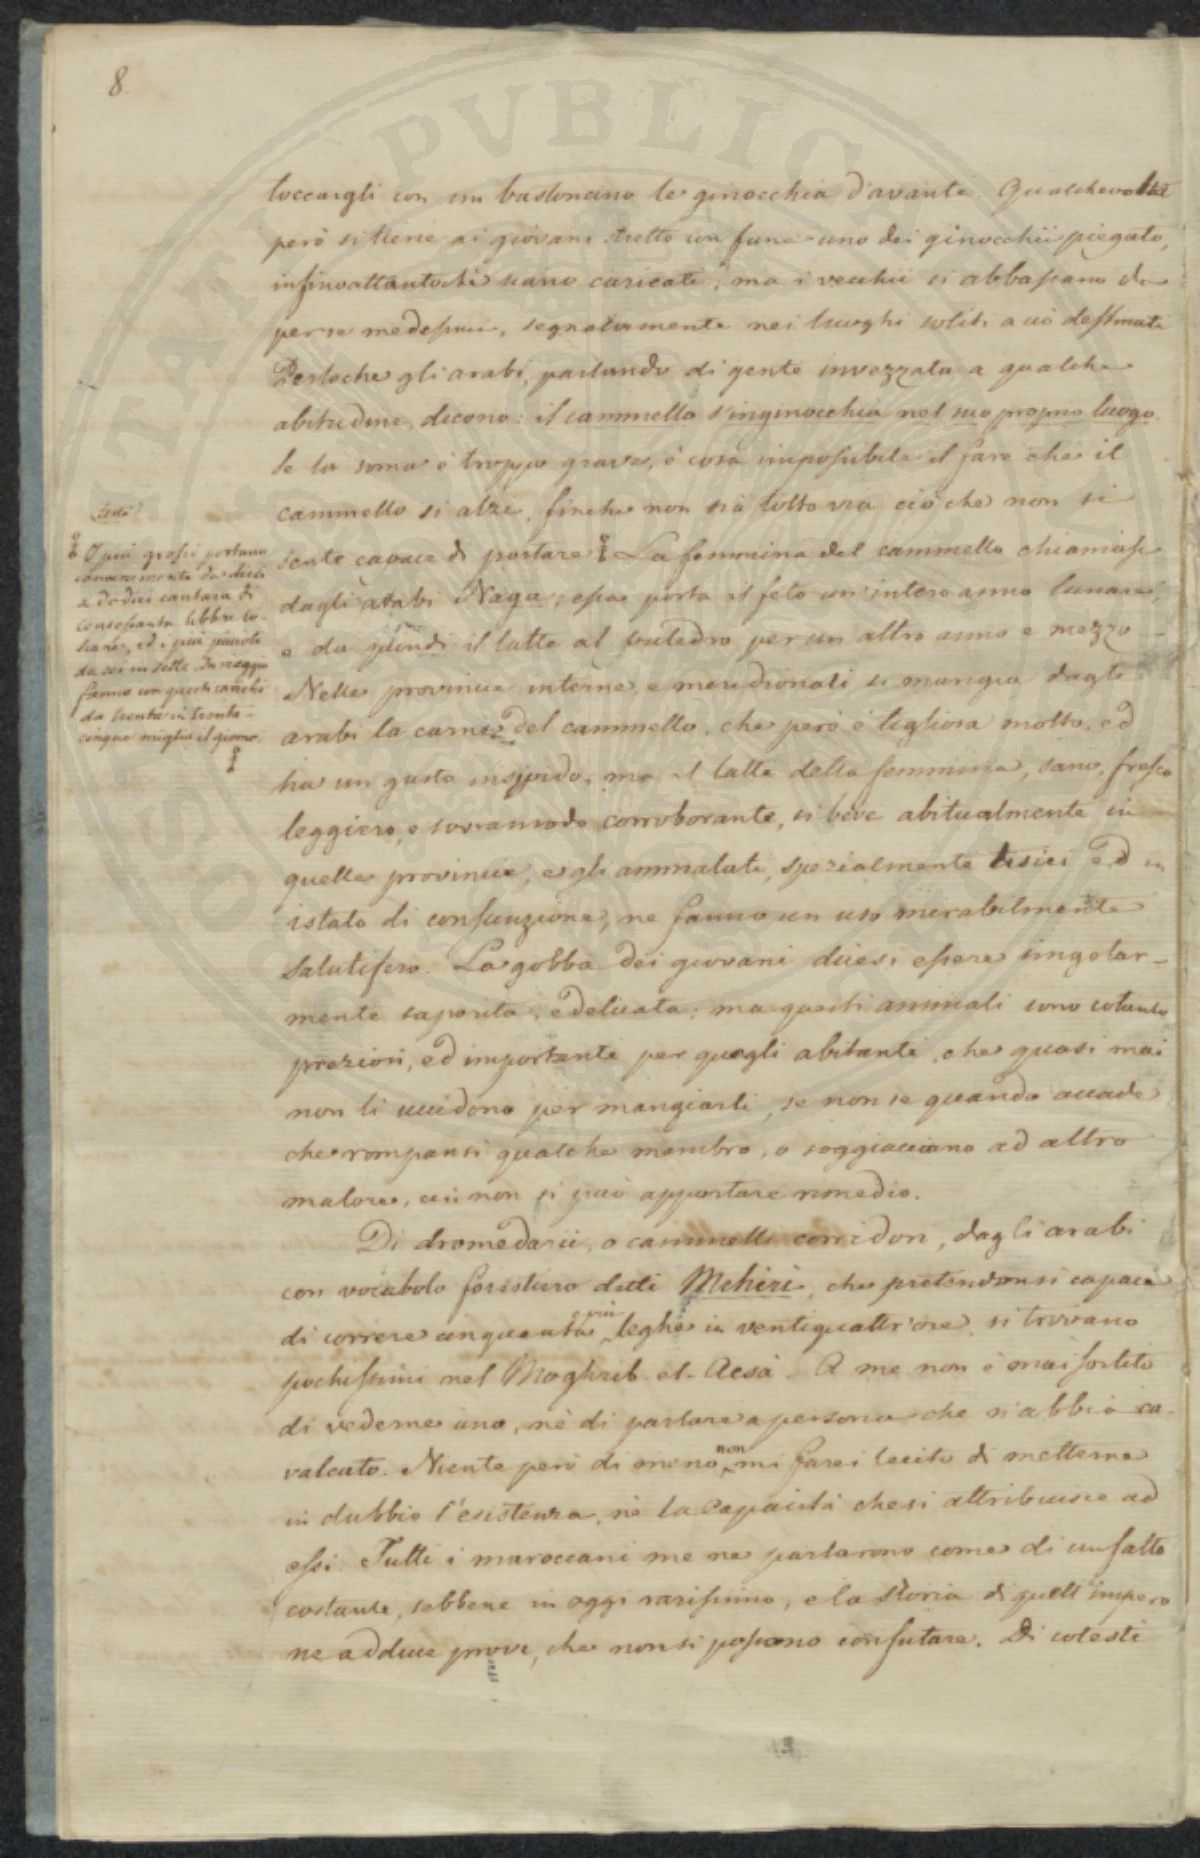 8
toccargli con un bastoncino le ginocchia d'avante. Qualchevolta
però si tiene ai giovani stretto con fune uno dei ginocchii piegato,
infinoattantochè siano caricati; ma i vecchii si abbassano da
per se medesimi, segnatamente nei luoghi soliti a ciò destinati
Perloche gli arabi, parlando di gente invezzata a qualche
abitudine, dicono: il cammello s'inginocchia nel suo proprio luogo.
Se la soma è troppo grave, è cosa impossibile il fare che il
cammello si alzi, finche non sia tolto via ciò che non si
sente capace di portare. La femmina del cammello chiamasi
dagli arabi Naga; essa porta il feto un'intero anno lunare,
e da quindi il latte al puledro per un altro anno e mezzo
Nelle provincie interne e meridionali si mangia dagli
arabi la carne del cammello, che però è tigliosa molto, ed
ha un gusto insipido, ma il latte della femmina, sano, fresco
leggiero, e sovramodo corroborante, si beve abitualmente in
quelle provincie, e gli ammalati, spezialmente tisici ed in
istato di consunzione, ne fanno un uso mirabilmente
salutifero. La gobba dei giovani dicesi essere singolar-
mente saporita, e delicata; ma questi animali sono cotanto
preziosi, ed importanti per quegli abitanti, che quasi mai
non li uccidono per mangiarli, se non se quando accade
che rompansi qualche membro, o soggiacciano ad altro
malore, cui non si può apportare rimedio.
Di dromedarii, o cammelli corridori, dagli arabi
con vocabolo forestiero detti Mehiri, che pretendonsi capaci
di correre cinquanta e più leghe in ventiquattr'ore, si trovano
pochissimi nel Moghrib-el-Acsà. A me non è mai sortito
di vederne uno, nè di parlare a persona che ne abbia ca-
valcato. Niente però di meno non mi farei lecito di metterne
in dubbio l'esistenza, nè la capacità che si attribuisce ad
essi. Tutti i maroccani me ne parlarono come di un fatto
costante, sebbene in oggi rarissimo, e la storia di quell'impero
ne adduce prove, che non si possono confutare. Di cotesti
I più grossi portano
comunemente da dieci
a dodici cantara di
censessanta libbre to-
scane, ed i più piccoli
da sei in sette. In viaggio
fanno con questi carichi
da trenta in trenta-
cinque miglia il giorno.